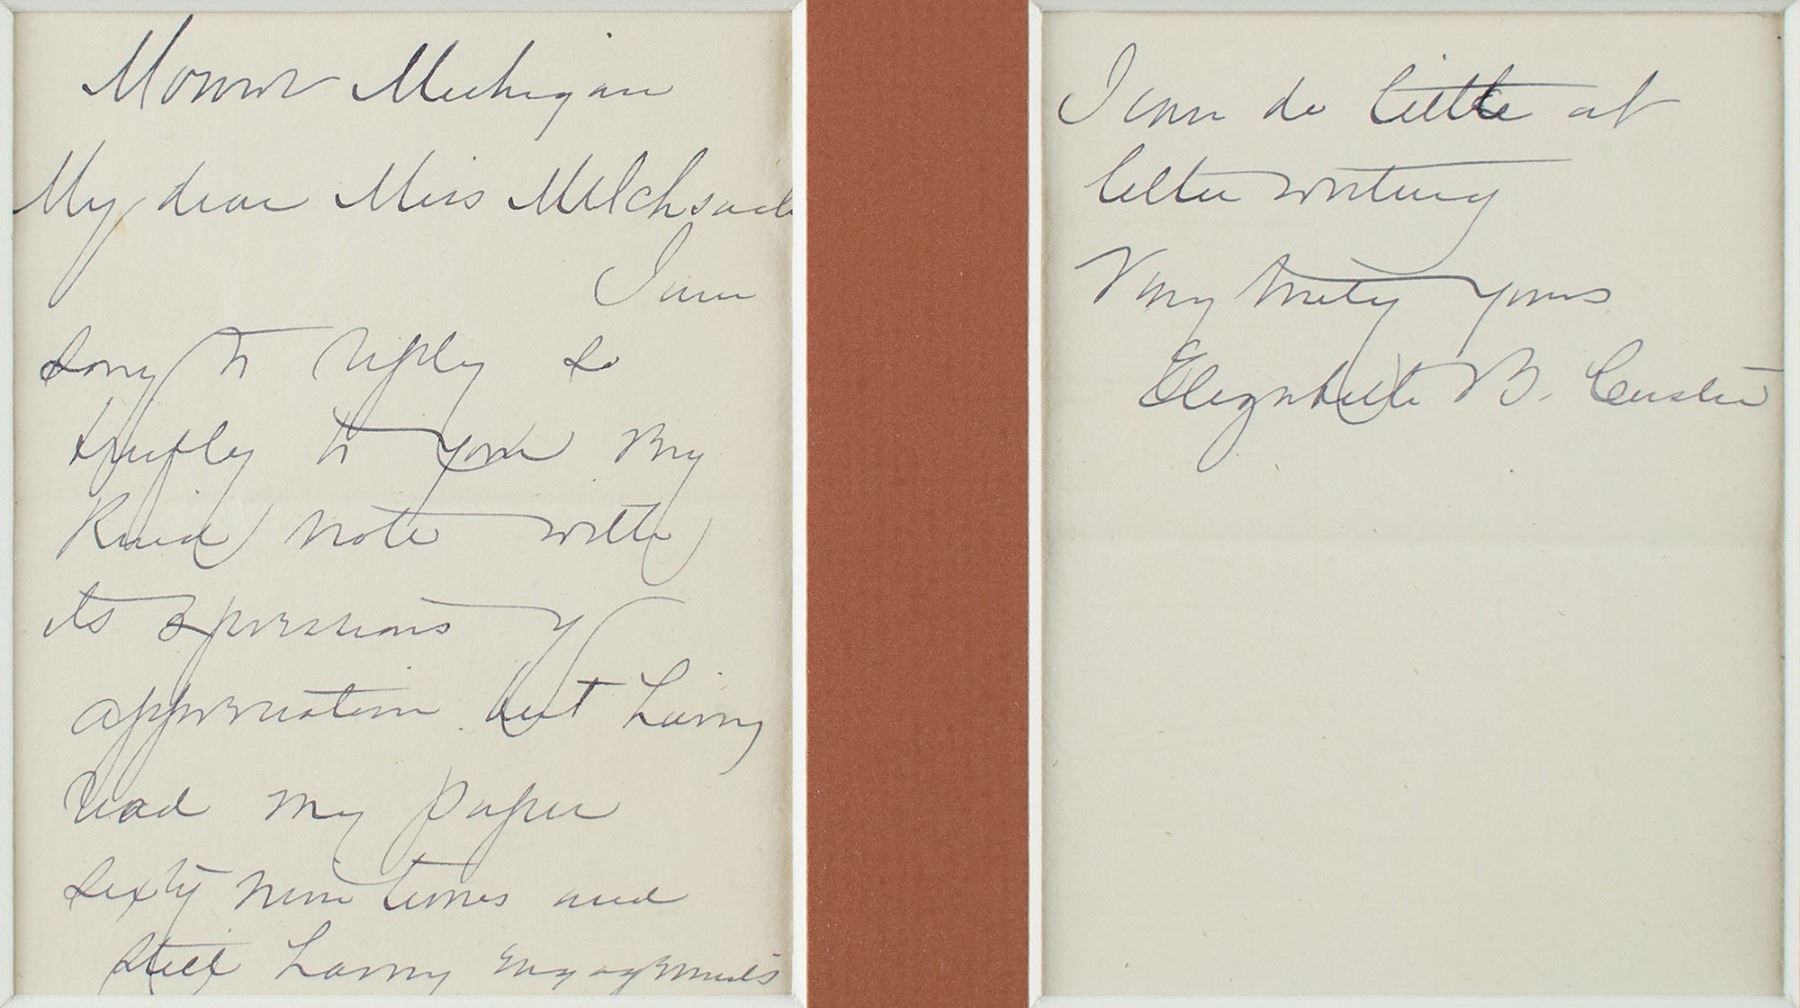 Monroe Michigan
My dear Miss
I am
sorry to reply so
briefly to your my
Kind note with
its expressions of
appreciation but having
read my paper
sixty nine times and
still having engagements
I can do little at
letter writing
Very truly yours
Elizabeth B. Custer